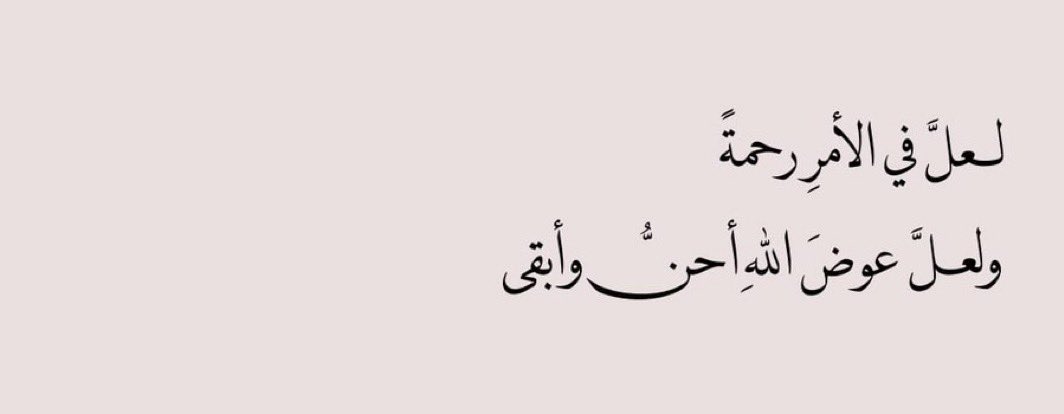 لعلَّ في الأمرِ رحمةً
ولعلَّ عوضَ اللهِ أحنُّ وأبقى